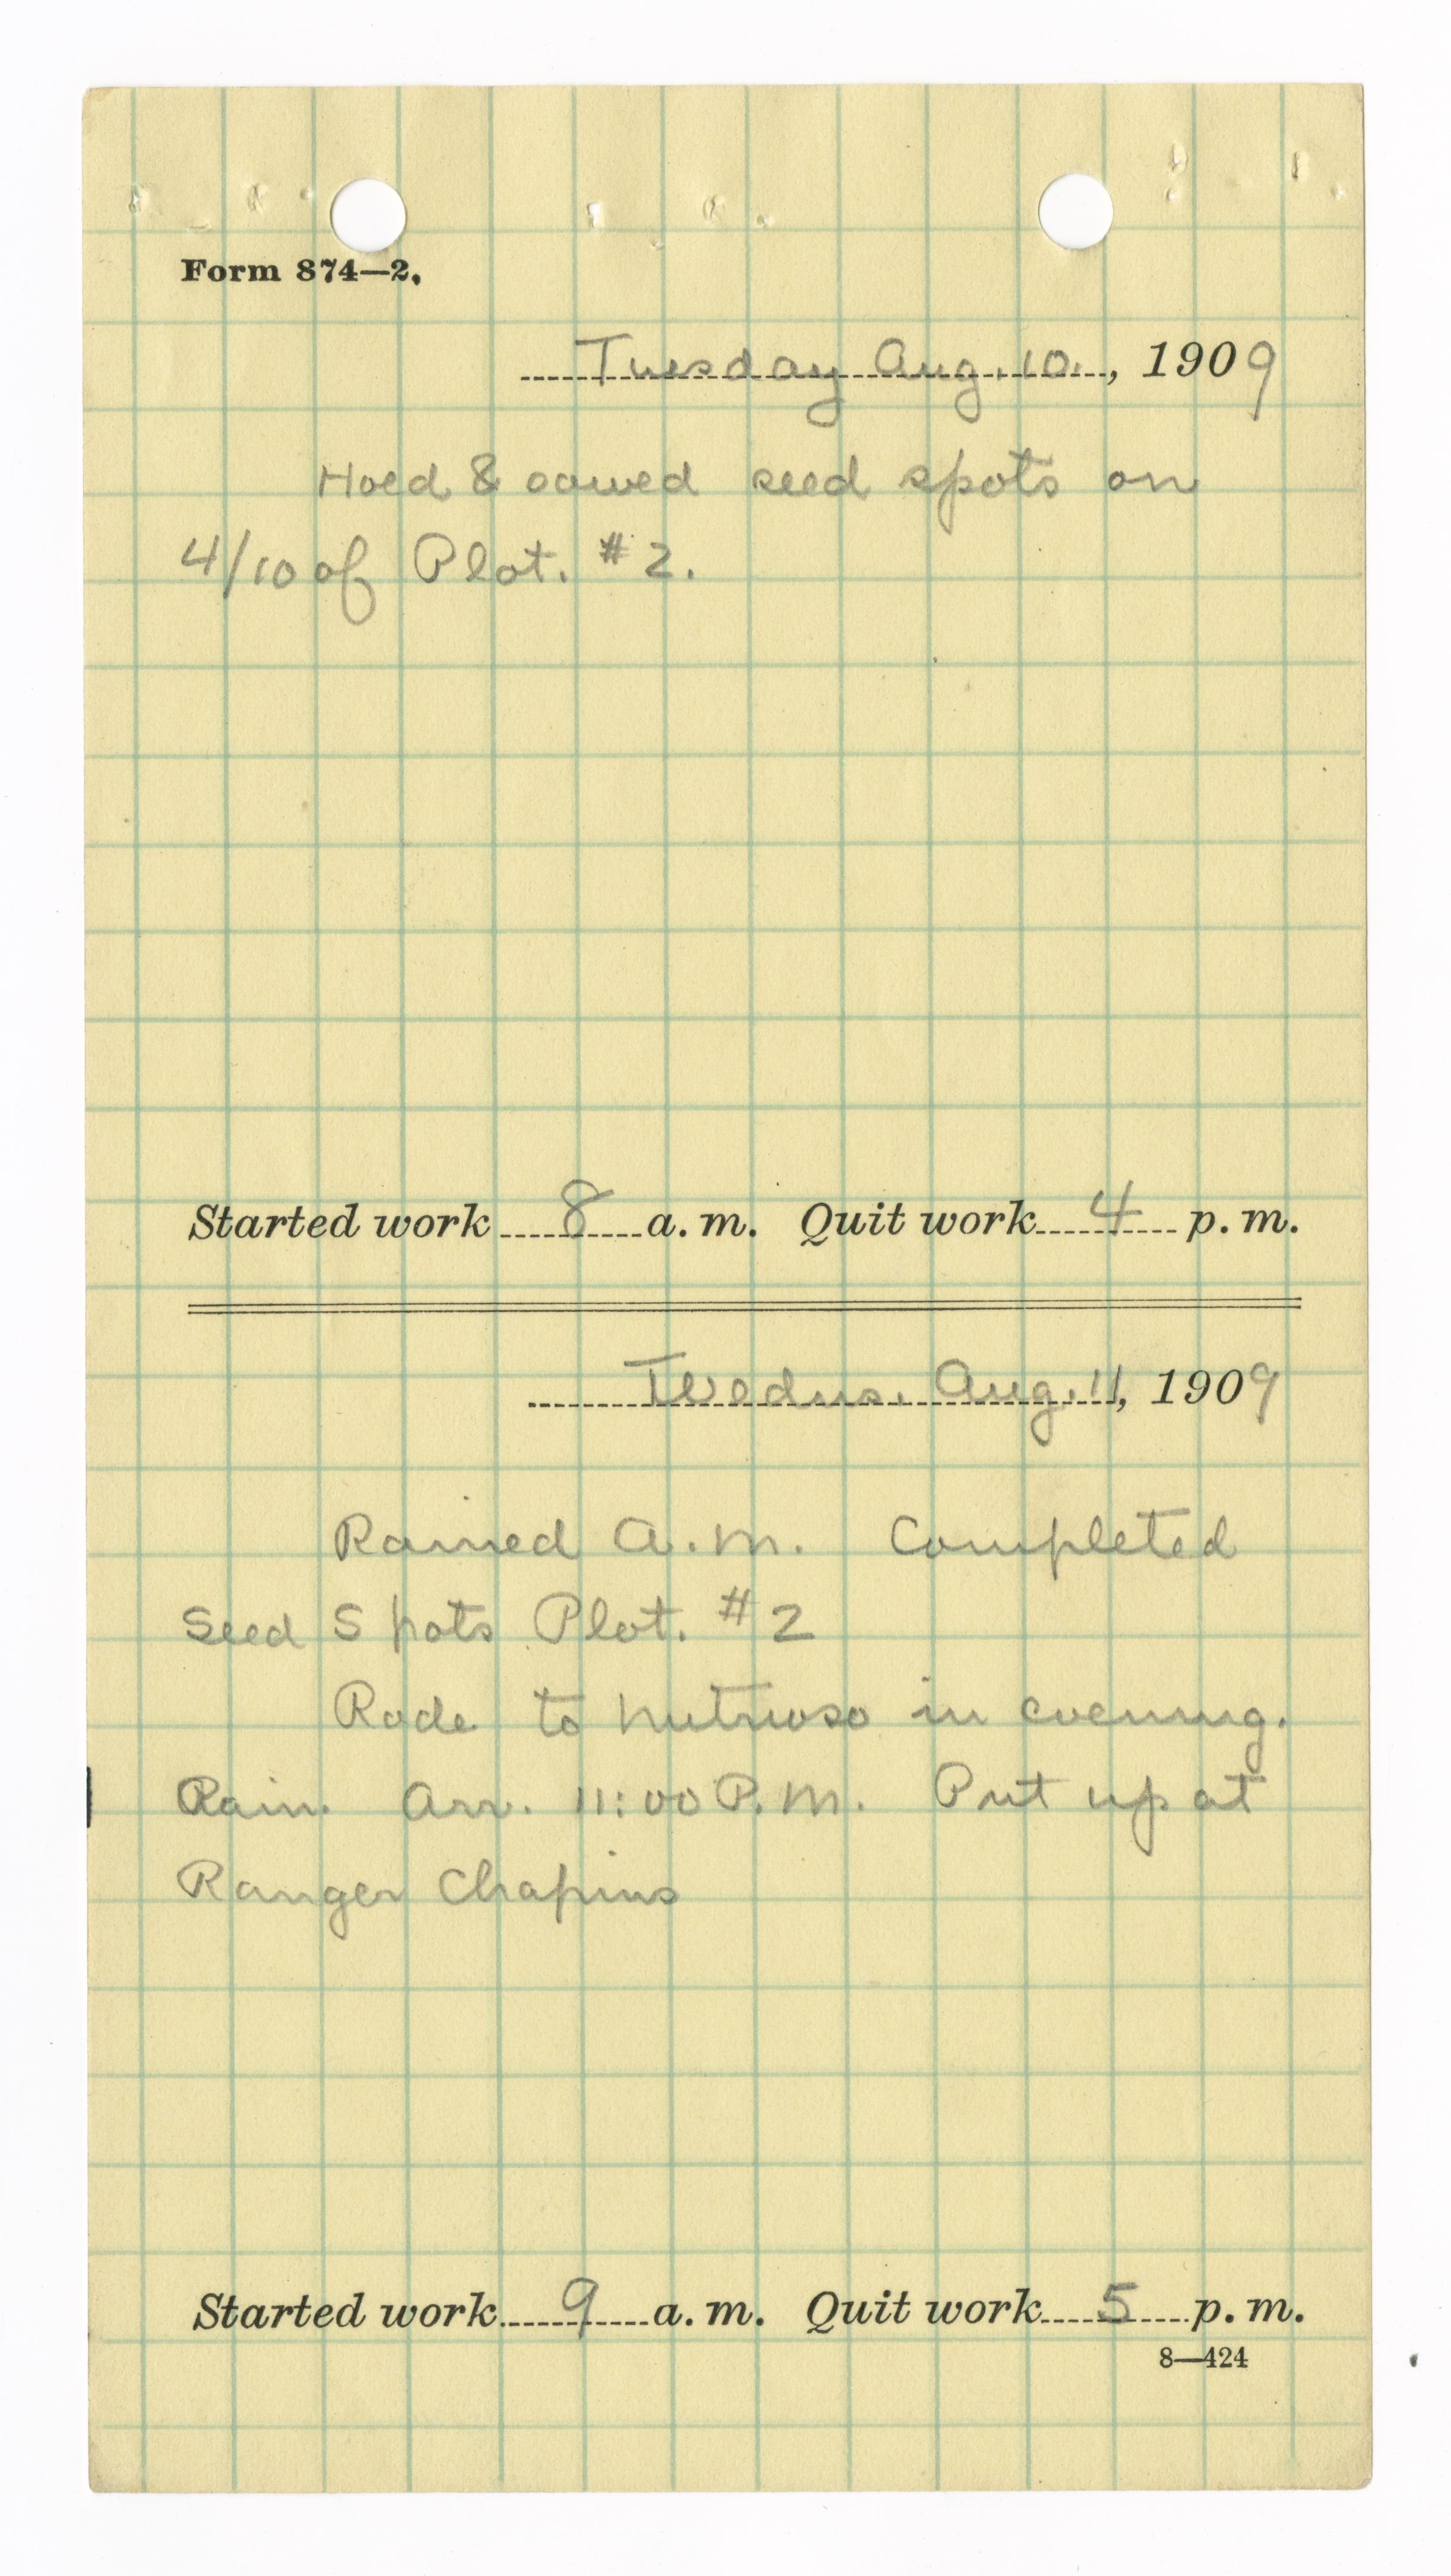 Form 874—2.
Tuesday Aug. 10., 1909
Hoed & sowed seed spots on
4/10 of Plot. #2.
Started work 8 a. m. Quit work 4 p. m.
Wednes. Aug. 11, 1909
Rained A.M. Completed
Seed Spots Plot. #2
Rode to Nutrioso in evening.
Rain. Arr. 11:00 P.M. Put up at
Ranger Chapins
Started work 9 a. m. Quit work 5 p. m.
8—424